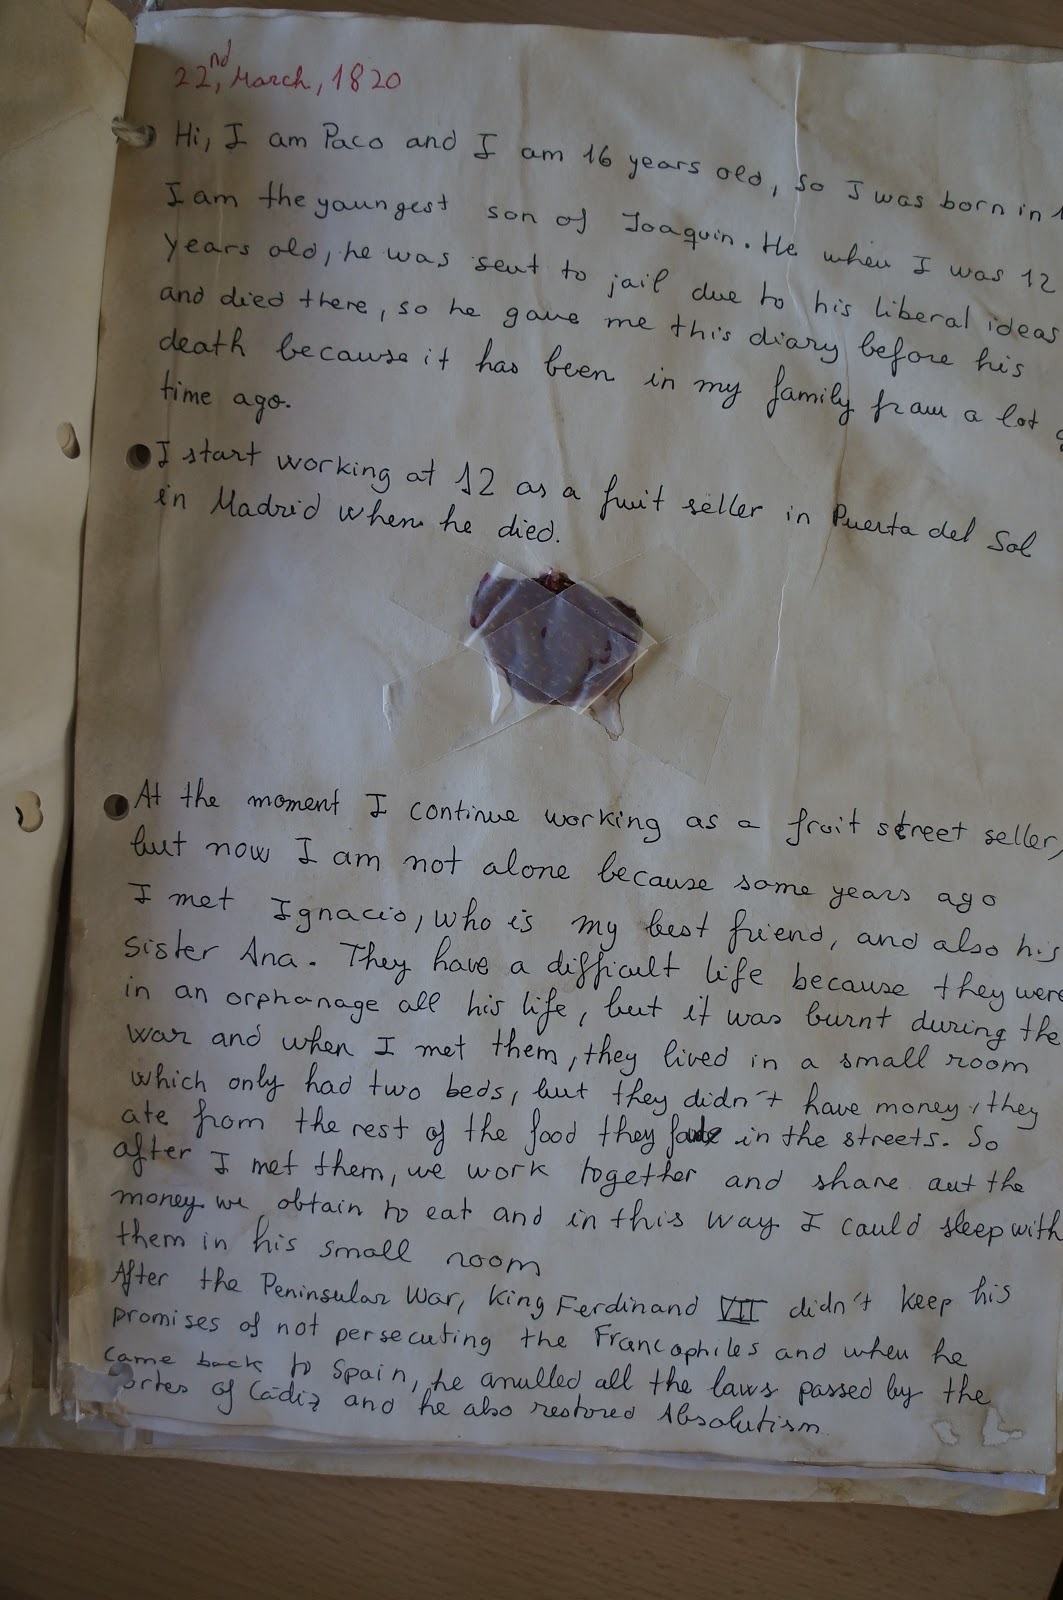 22nd, March, 1820
Hi, I am Paco and I am 16 years old, so I was born in
I am the youngest son of Joaquin. He when I was 12
years old, he was sent to jail due to his liberal ideas
and died there, so he gave me this diary before his
death because it has been in my family fram a lot
time ago.
I start working at 12 as a fruit seller in Puerta del Sol
in Madrid when he died.
At the moment I continue working as a fruit street seller,
but now I am not alone because some years ago
I met Ignacio, who is my best friend, and also his
sister Ana. They have a difficult life because they were
in an orphanage all his life, but it was burnt during the
war and when I met them, they lived in a small room
which only had two beds, but they didn't have money, they
ate from the rest of the food they in the streets. So
after I met them, we work together and share aut the
money we obtain to eat and in this way I could sleep with
them in his small room
After the Peninsular War, King Ferdinand VII didn't keep his
promises of not persecuting the Francophiles and when he
came back to Spain, he anulled all the laws passed by the
ortes of Cádiz and he also restored Absolutism